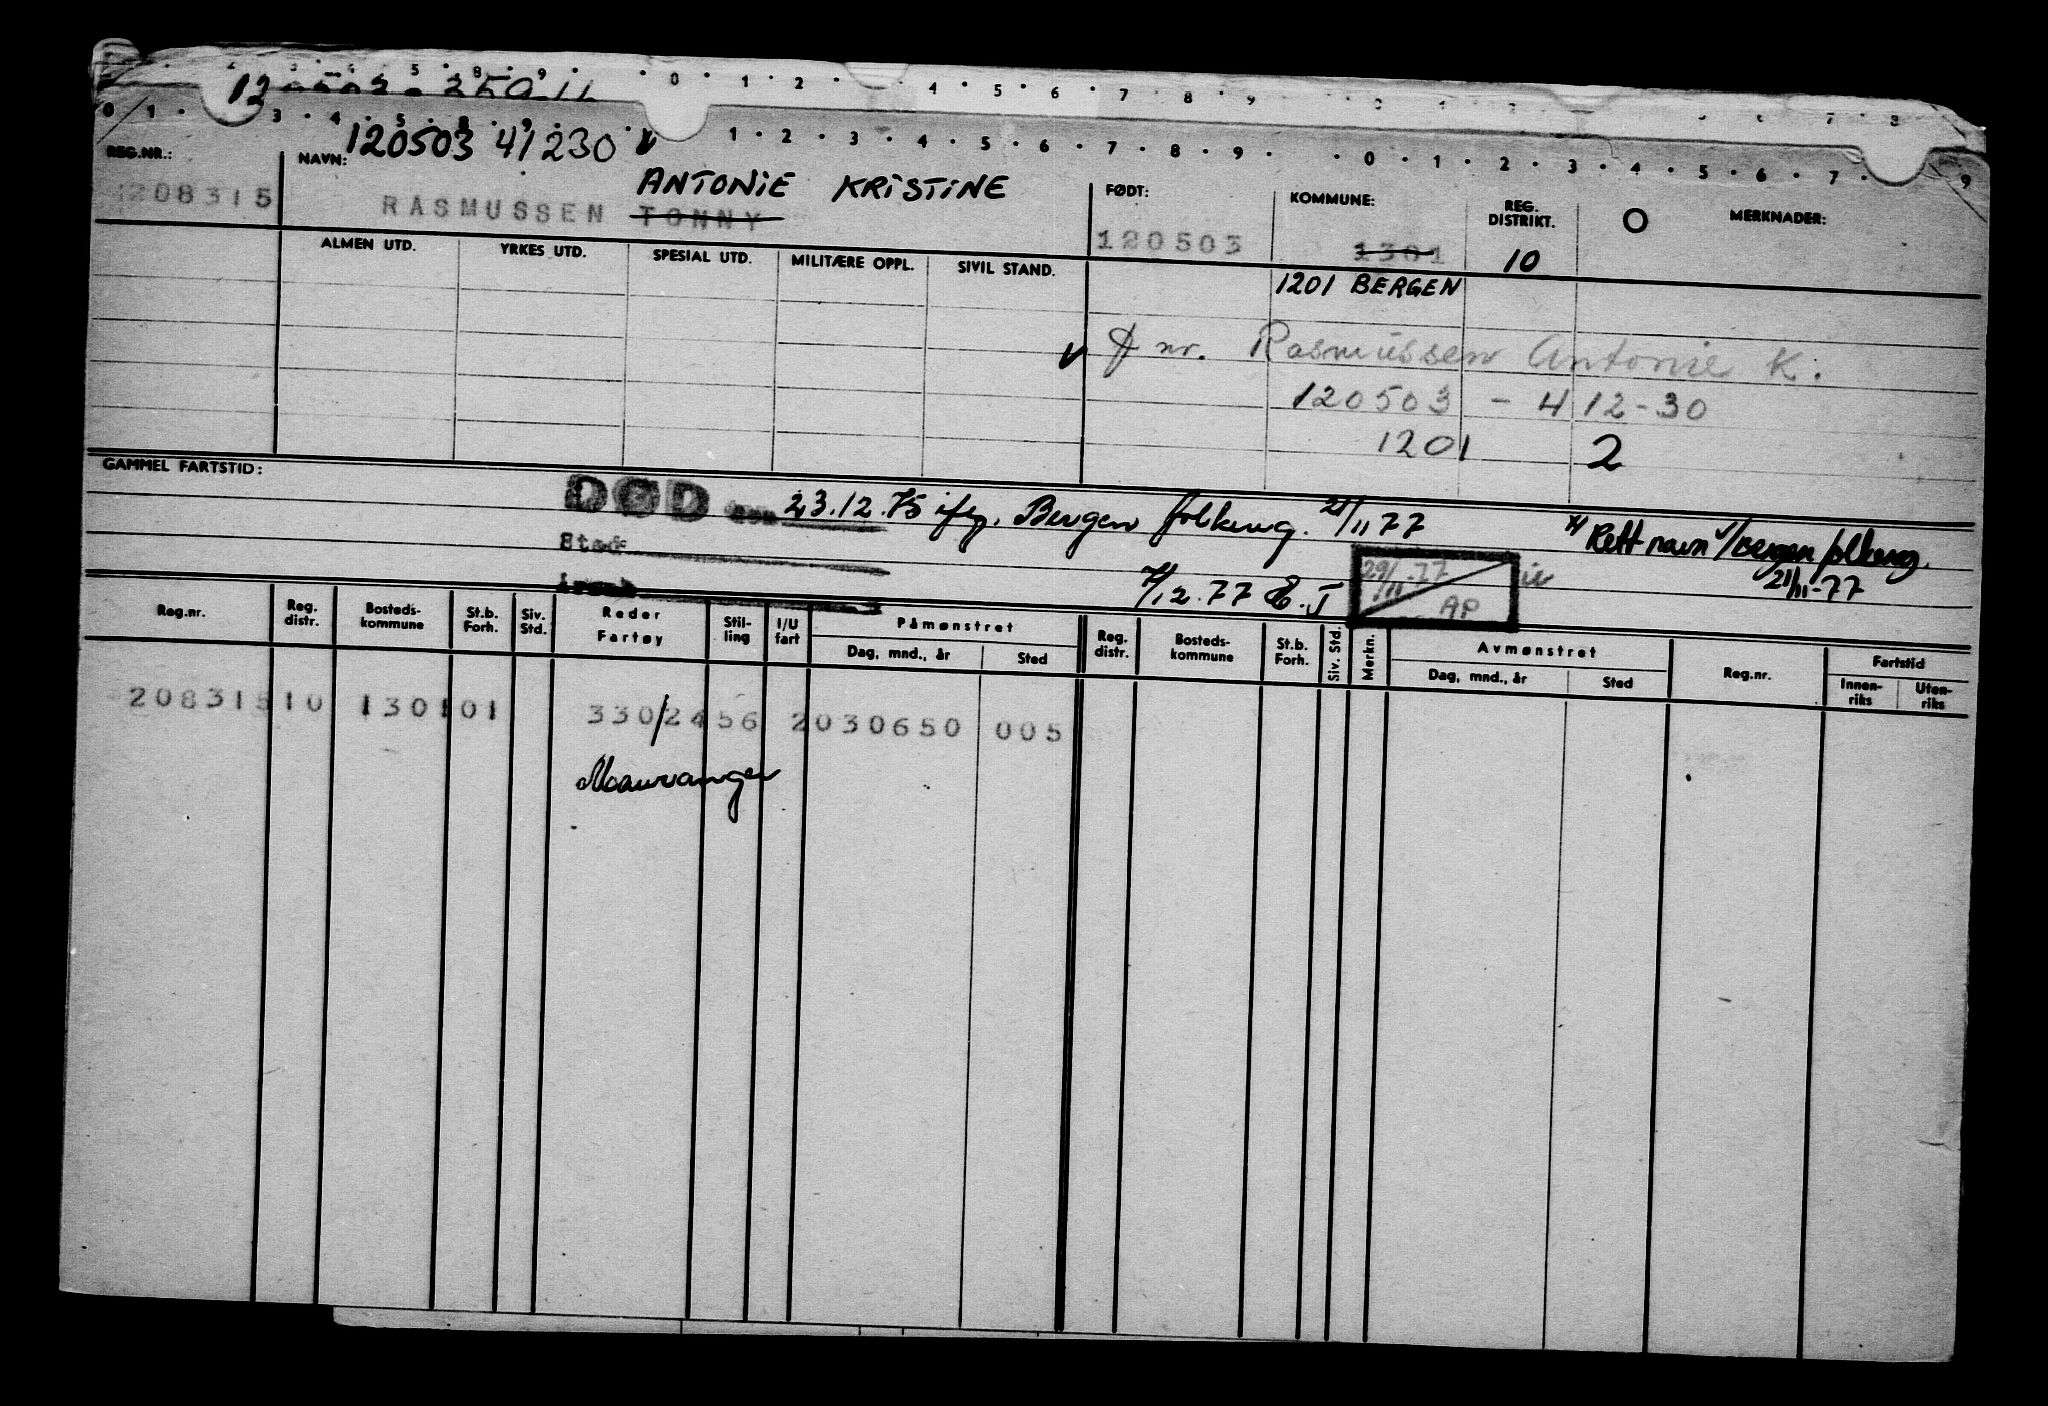 120503 41230
REG.NR.: NAVN: ANTONIE KRISTINE FØDT: KOMMUNE: REG. DISTRIKT. O MERKNADER:
1208315 RASMUSSEN TONNY 120503 1301 10
ALMEN UTD. YRKES UTD. SPESIAL UTD. MILITÆRE OPPL. SIVIL STAND.
1201 BERGEN
nr. Rasmussen Antonie K.
120503 - 412-30
1201 2
GAMMEL FARTSTID:
DØD den 23.12.75 ifg. Bergen folkereg. 21/11 77
Rett navn v/Bergen folkereg.
21/11-77
Sted
årsak
7/12.77 E.J
29/11-77
AP
Reg.nr. Reg. distr. Bosteds-kommune St.b. Forh. Siv. Std. Reder Fartøy Stil-ling I/U fart Påmønstret Dag, mnd., år Sted Reg. distr. Bosteds-kommune St.b. Forh. Siv. Std. Merkn. Avmønstret Dag, mnd., år Sted Reg.nr. Fartstid Innen-riks Uten-riks
208315 10 1301 01 330/24 56 2 030650 005
Mauranger